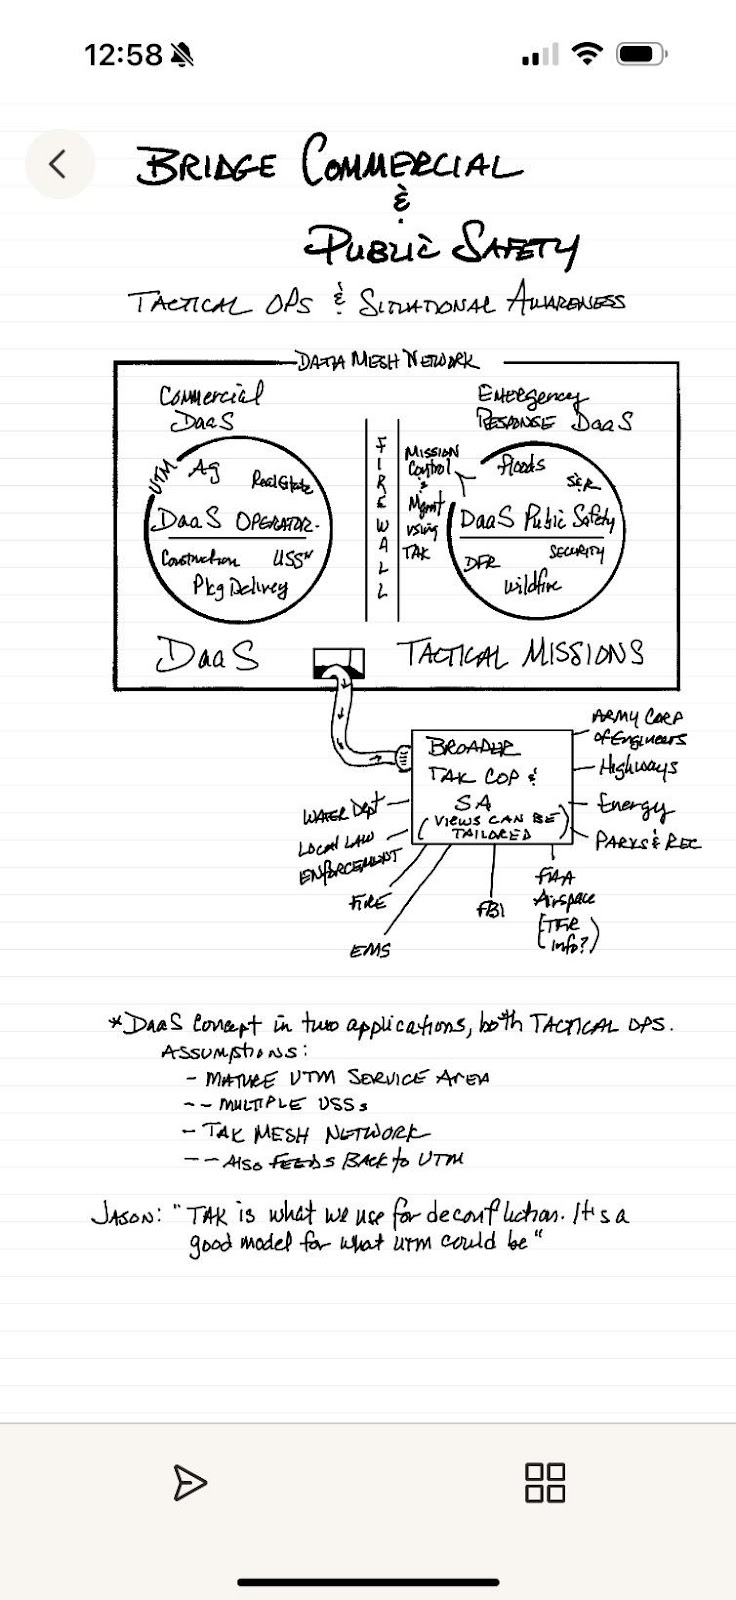 12:58
BRIDGE COMMERCIAL
&
PUBLIC SAFETY
TACTICAL OPS & SITUATIONAL AWARENESS
DATA MESH NETWORK
Commercial
DaaS
UTM
Ag
Real Estate
DaaS OPERATOR.
Construction
USSn
Pkg Delivery
DaaS
FIREWALL
MISSION
Control
&
Mgmt
using
TAK
Emergency
RESPONSE DaaS
floods
S&R
DaaS Public Safety
DFR
SECURITY
Wildfire
TACTICAL MISSIONS
BROADER
TAK COP &
SA
(VIEWS CAN BE
TAILORED)
ARMY CORP
of Engineers
Highways
Energy
PARKS & REC
WATER Dept
LOCAL LAW
ENFORCEMENT
FIRE
EMS
FBI
FAA
Airspace
(TFR
info?)
*DaaS Concept in two applications, both TACTICAL OPS.
ASSUMPTIONS:
- MATURE UTM SERVICE AREA
-- MULTIPLE USSs
- TAK MESH NETWORK
-- Also FEEDS BACK to UTM
JASON: "TAK is what we use for deconfliction. It's a
good model for what UTM could be"